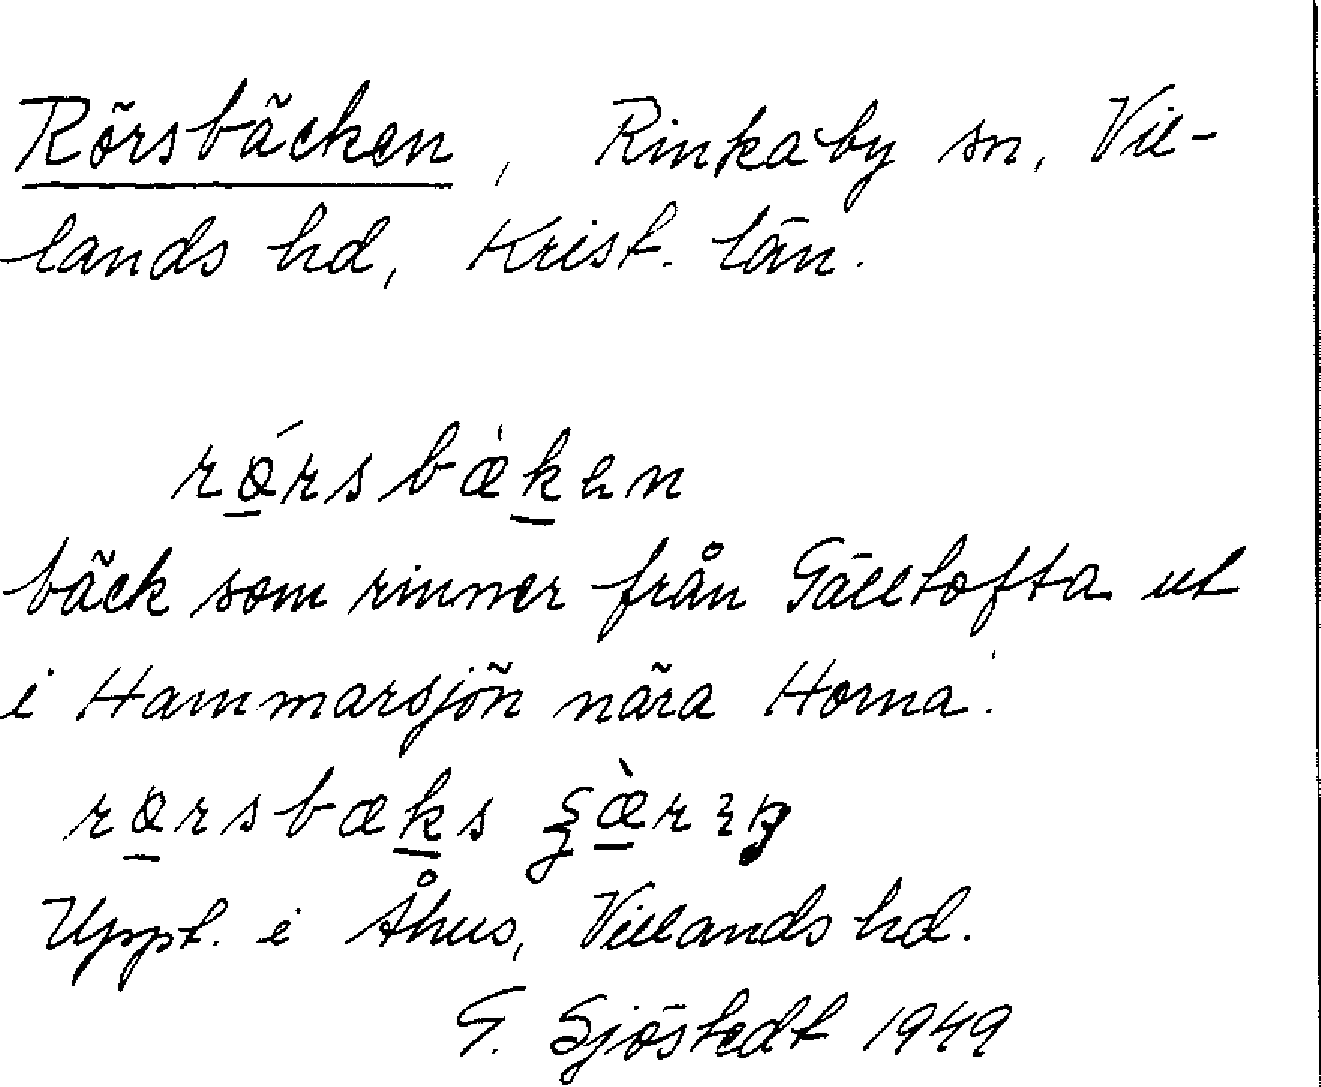 Rörsbäcken, Rinkaby sn, Vil-
lands hd, Krist. län.
rǿrsbæ̀ken
bäck som rinner från Gälltofta ut
i Hammarsjön nära Horna.
rørsbæks
Uppt. i Åhus, Villands hd.
G. Sjöstedt 1949